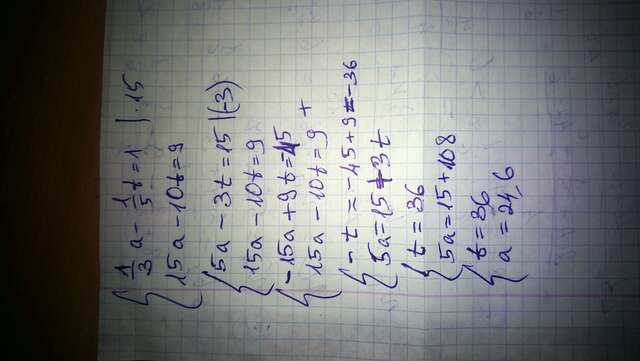 1/3 a - 1/5 t = 1 | · 15
15a - 10t = 9
5a - 3t = 15 |(-3)
15a - 10t = 9
-15a + 9t = 45
15a - 10t = 9 +
-t = -45 + 9 = -36
5a = 15 + 3t
t = 36
5a = 15 + 108
t = 36
a = 24,6